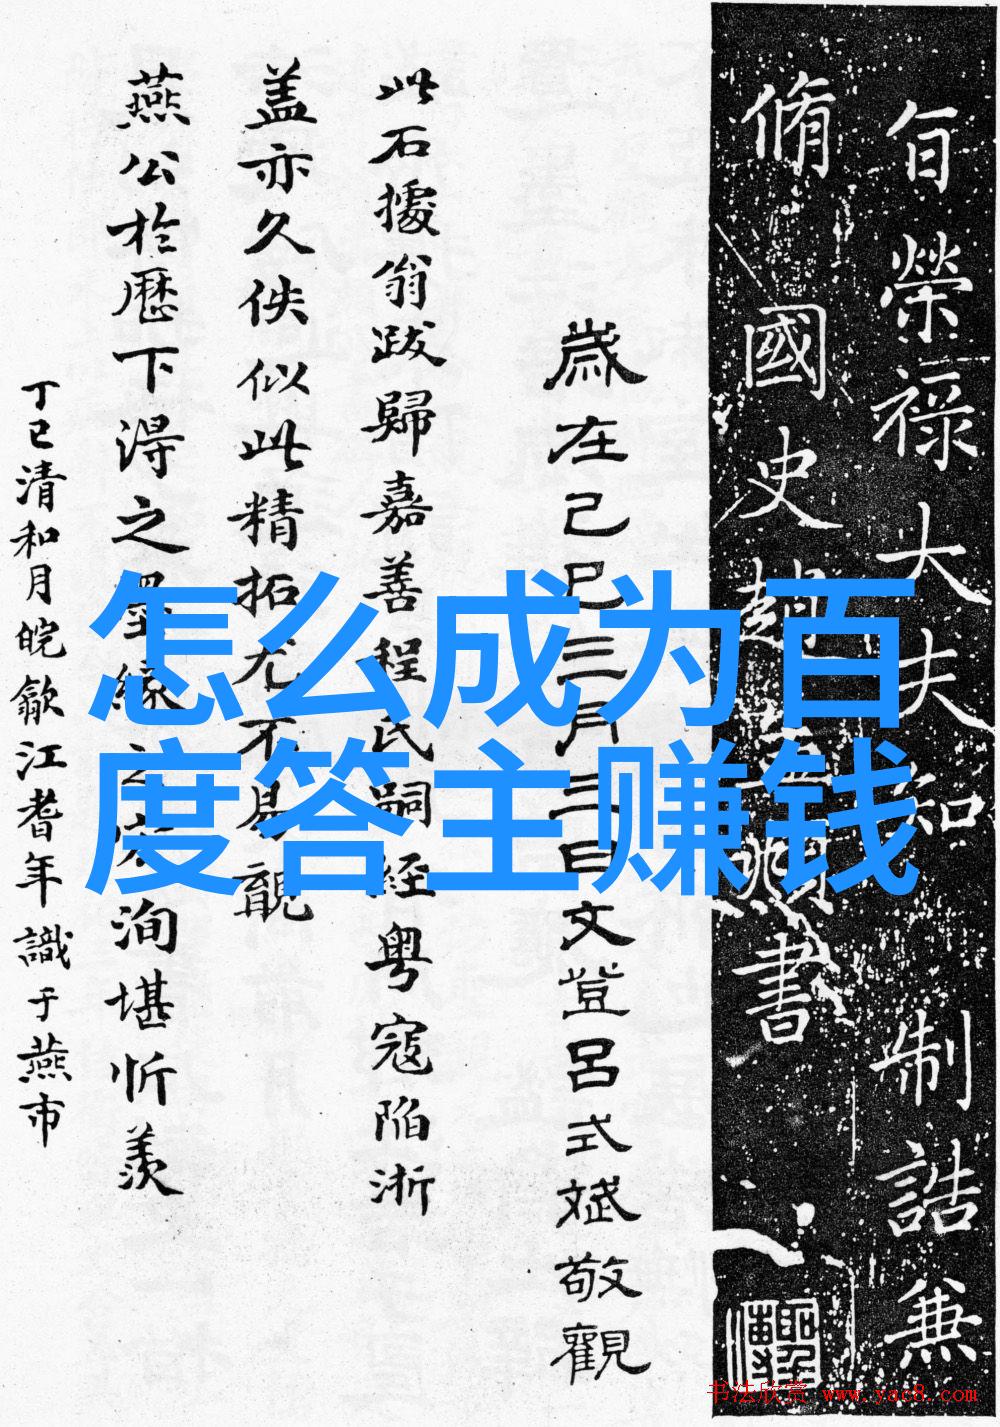 㫖榮祿大夫知制誥兼
脩國史趙孟頫書
歲在己巳三月三日文登呂式斌敬觀
此石據翁跋歸嘉善程氏嗣經粵寇陷浙
盖亦久佚似此精拓尤不易覯
燕公於歷下淂之墨緣之洵堪忻羨
丁巳清和月皖歙江耆年識于燕市
怎么成为百
度答主赚钱
书法欣赏 www.yac8.com